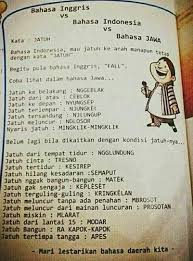 Bahasa Inggris
vs
Bahasa Indonesia
vs
Bahasa JAWA
Kata : JATUH
Bahasa Indonesia, mau jatuh ke arah manapun tetap
dengan kata "JATUH".
Begitu pula bahasa Inggris, "FALL".
Coba lihat dalam bahasa Jawa...
Jatuh ke belakang : NGGEBLAK
Jatuh dari atas : CEBLOK
Jatuh ke depan : NYUNGSEP
Jatuh terlempar : NJEMPING
Jatuh tersandung : NJLUNGUP
Jatuh meluncur : NDLOSOR
Nyaris jatuh : MINGKLIK-MINGKLIK
Belum lagi bila dikaitkan dengan kondisi jatuh-nya...
Jatuh dari tempat tidur : NGGLUNDUNG
Jatuh cinta : TRESNO
Jatuh tertidur : KESIREP
Jatuh hilang kesadaran : SEMAPUT
Jatuh nggak bangun-bangun : MATEK
Jatuh gak sengaja : KEPLESET
Jatuh terguling-guling : KRINGKELAN
Jatuh meluncur tanpa ada penahan : MBROSOT
Jatuh meluncur dari mainan luncuran : PROSOTAN
Jatuh miskin : MLARAT
Jatuh dari lantai 15 : MODAR
Jatuh Bangun : RA KAPOK-KAPOK
Jatuh tertimpa tangga : APES
- Mari lestarikan bahasa daerah kita -